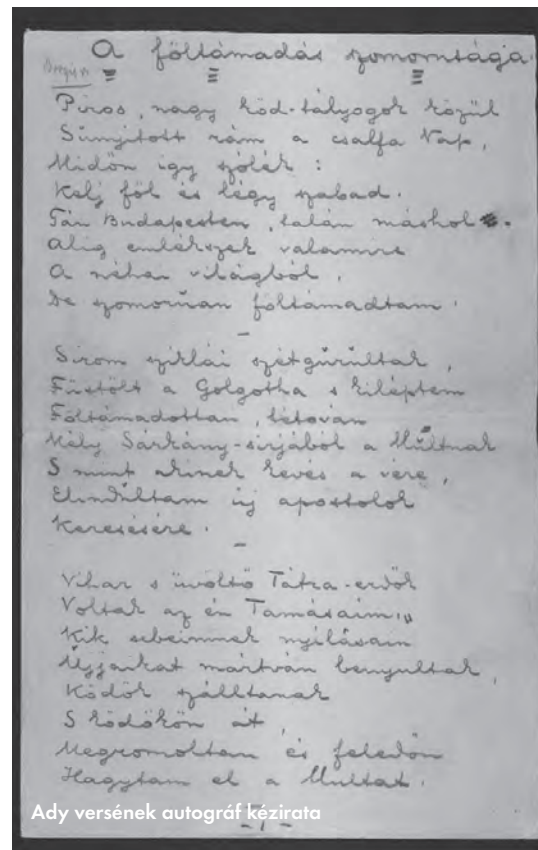 A föltámadás szomorusága.
Piros, nagy köd-tályogok közül
Sunyitott rám a csalfa Nap,
Midőn igy szólék:
Kelj föl és légy szabad.
Tán Budapesten, talán máshol.
Alig emlékszek valamire
A néhai világból,
De szomorúan föltámadtam.
–
Sirom sziklái szétgúrúltak,
Füstölt a Golgotha s kiléptem
Föltámadottan, tétován
Mély Sárkány-sirjából a Múltnak
S mint akinek kevés a vére,
Elindúltam új apostolok
Keresésére.
–
Vihar s üvöltő Tátra-erdők
Voltak az én Tamásaim,
Kik sebeimnek nyilásain
Újjaikat mártván benyultak,
Ködök szálltanak
S ködökön át,
Megromoltan és feledőn
Hagytam el a Multat.
Ady versének autográf kézirata
-1-